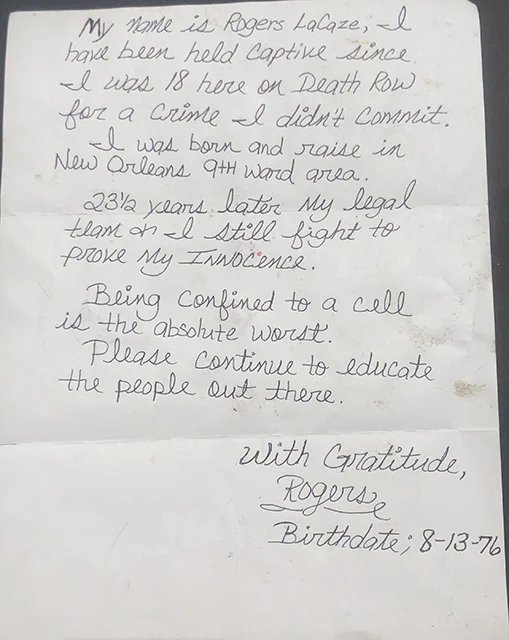 My name is Rogers LaCaze, I
have been held captive since
I was 18 here on Death Row
for a crime I didn't commit.
I was born and raise in
New Orleans 9TH ward area.
23½ years later my legal
team n I still fight to
prove my INNOCENCE.
Being confined to a cell
is the absolute worst.
Please continue to educate
the people out there.
With Gratitude,
Rogers
Birthdate; 8-13-76